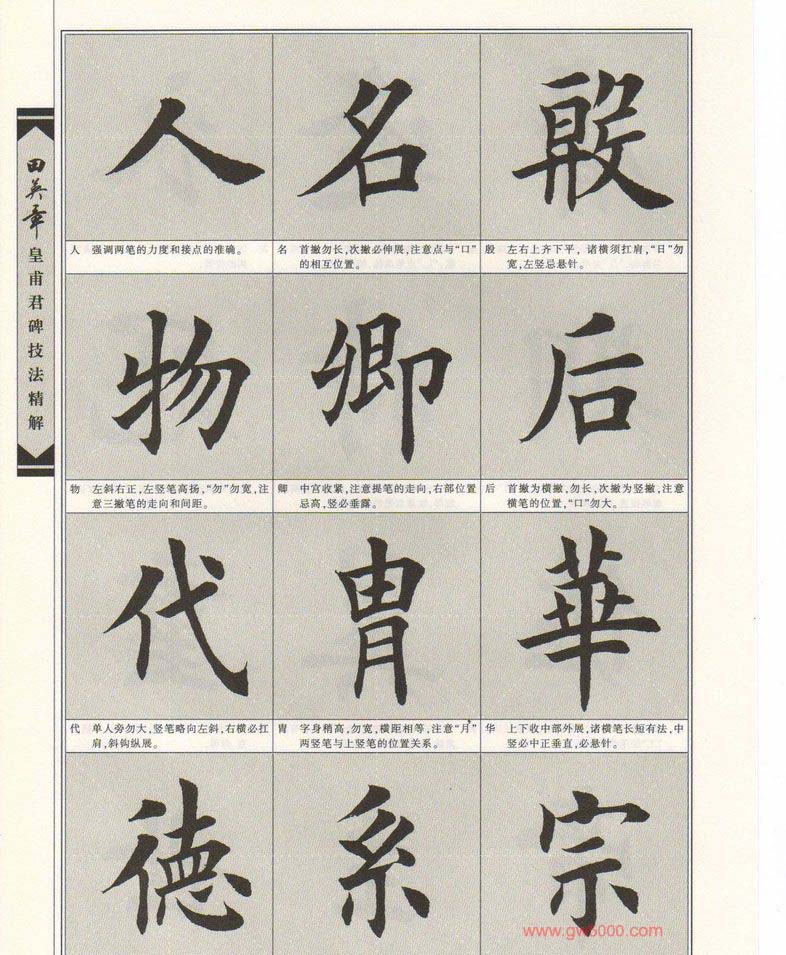 田英章
皇甫君碑技法精解
人 名 殷
人 强调两笔的力度和接点的准确。
名 首撇勿长，次撇必伸展，注意点与“口”
的相互位置。
殷 左右上齐下平，诸横须扛肩，“日”勿
宽，左竖忌悬针。
物 卿 后
物 左斜右正，左竖笔高扬，“勿”勿宽，注
意三撇笔的走向和间距。
卿 中宫收紧，注意提笔的走向，右部位置
忌高，竖必垂露。
后 首撇为横撇，勿长，次撇为竖撇，注意
横笔的位置，“口”勿大。
代 胄 華
代 单人旁勿大，竖笔略向左斜，右横必扛
肩，斜钩纵展。
胄 字身稍高，勿宽，横距相等，注意“月”
两竖笔与上竖笔的位置关系。
华 上下收中部外展，诸横笔长短有法，中
竖必中正垂直，必悬针。
德 系 宗